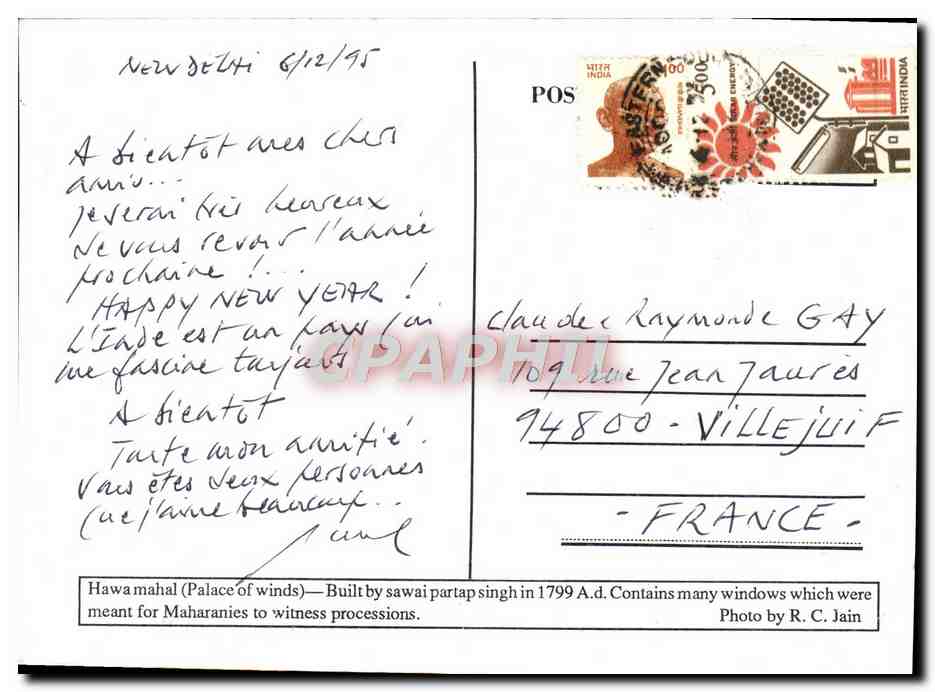 NEW DELHI 6/12/95
A bientôt mes chers
amis...
je serai très heureux
de vous revoir l'année
prochaine !...
HAPPY NEW YEAR !
L'Inde est un pays qui
me fascine toujours
A bientôt
Toute mon amitié.
Vous êtes deux personnes
que j'aime beaucoup...
POS
भारत
INDIA
100
500
SOLAR ENERGY
भारत INDIA
EASTERN
CPAPHIL
Claude & Raymonde GAY
109 rue Jean Jaurès
94800 - VILLEJUIF
- FRANCE -
Hawa mahal (Palace of winds)— Built by sawai partap singh in 1799 A.d. Contains many windows which were
meant for Maharanies to witness processions. Photo by R. C. Jain